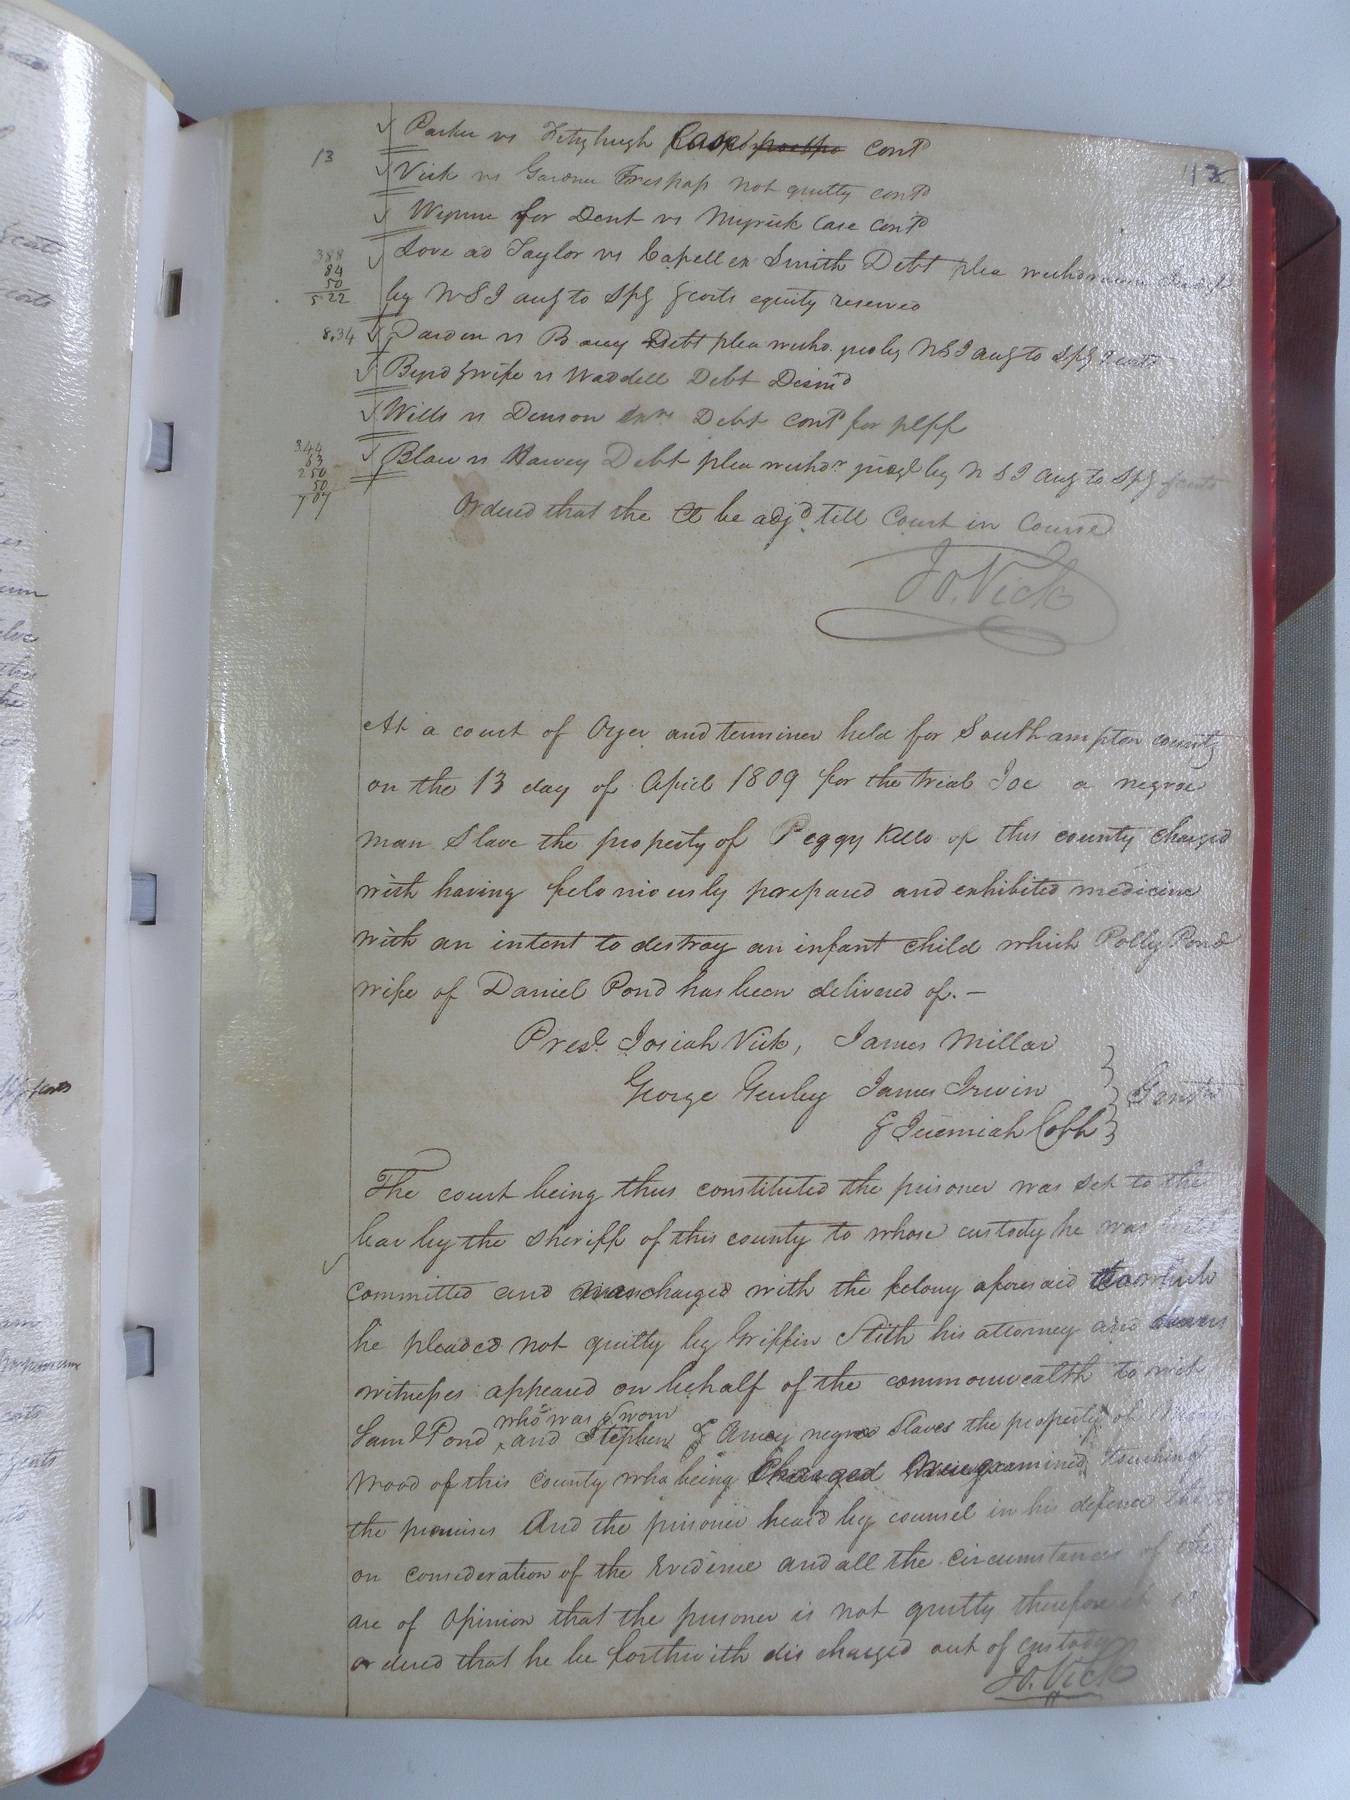 Parker vs Fitzhugh Case contd
13
112
Vick vs Gardner Trespass not guilty contd
for Dent vs Myrick Case contd
Love ad Taylor vs Capell ex Smith Debt plea
388
84
50
5 22
by N S I aug to Spg & costs equity reserved
8.34
Darden vs Debt plea withd. judg by N S I aug to Spg & costs
Byrd & wife vs Waddell Debt Dismd
Wills vs Denson exrs Debt contd for plff
Blow vs Harvey Debt plea withdr judgt by N S I aug to Spg & costs
344
63
2 50
50
7 07
Ordered that the Ct be adjd till Court in Course
Jo. Vick
At a court of Oyer and terminer held for Southampton county
on the 13 day of April 1809 for the trial Joe a negroe
man Slave the property of Peggy Kello of this county charged
with having feloniously prepared and exhibited medicine
with an intent to destroy an infant child which Polly Pond
wife of Daniel Pond has been delivered of. —
Prest. Josiah Vick, James Millar
George Gurley James Irwin
Gentn
& Jeremiah Cobb
The court being thus constituted the prisoner was set to the
bar by the sheriff of this county to whose custody he was
committed and was charged with the felony aforesaid to which
he pleaded not guilty by Griffin Stith his attorney and divers
witnesses appeared on behalf of the commonwealth to wit
who was Sworn
Saml Pond and Stephen & Amey negroe Slaves the property of
Wood of this county who being Charged examined touching
the premises And the prisoner heard by counsel in his defence
on consideration of the Evidence and all the circumstances of the
are of Opinion that the prisoner is not guilty therefore it is
ordered that he be forthwith discharged out of custody
Jo. Vick